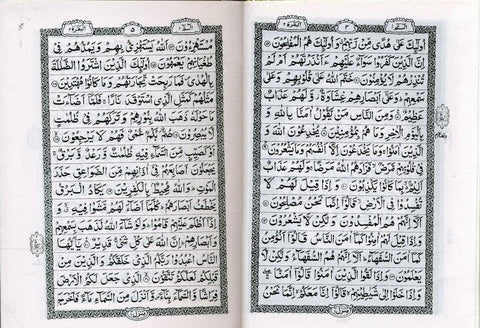 البقرة ٢
اُولٰٓئِكَ عَلٰى هُدًى مِّنْ رَّبِّهِمْ وَاُولٰٓئِكَ هُمُ الْمُفْلِحُوْنَ
اِنَّ الَّذِيْنَ كَفَرُوْا سَوَآءٌ عَلَيْهِمْ ءَاَنْذَرْتَهُمْ اَمْ لَمْ
تُنْذِرْهُمْ لَا يُؤْمِنُوْنَ خَتَمَ اللّٰهُ عَلٰى قُلُوْبِهِمْ وَعَلٰى
سَمْعِهِمْ وَعَلٰٓى اَبْصَارِهِمْ غِشَاوَةٌ وَّلَهُمْ عَذَابٌ
عَظِيْمٌ وَمِنَ النَّاسِ مَنْ يَّقُوْلُ اٰمَنَّا بِاللّٰهِ وَ
بِالْيَوْمِ الْاٰخِرِ وَمَا هُمْ بِمُؤْمِنِيْنَ يُخٰدِعُوْنَ اللّٰهَ وَ
الَّذِيْنَ اٰمَنُوْا وَمَا يَخْدَعُوْنَ اِلَّآ اَنْفُسَهُمْ وَمَا يَشْعُرُوْنَ
فِيْ قُلُوْبِهِمْ مَّرَضٌ فَزَادَهُمُ اللّٰهُ مَرَضًا وَلَهُمْ عَذَابٌ
اَلِيْمٌۢ بِمَا كَانُوْا يَكْذِبُوْنَ وَاِذَا قِيْلَ لَهُمْ لَا
تُفْسِدُوْا فِي الْاَرْضِ قَالُوْٓا اِنَّمَا نَحْنُ مُصْلِحُوْنَ
اَلَآ اِنَّهُمْ هُمُ الْمُفْسِدُوْنَ وَلٰكِنْ لَّا يَشْعُرُوْنَ
وَاِذَا قِيْلَ لَهُمْ اٰمِنُوْا كَمَآ اٰمَنَ النَّاسُ قَالُوْٓا اَنُؤْمِنُ
كَمَآ اٰمَنَ السُّفَهَآءُ اَلَآ اِنَّهُمْ هُمُ السُّفَهَآءُ وَلٰكِنْ لَّا
يَعْلَمُوْنَ وَاِذَا لَقُوا الَّذِيْنَ اٰمَنُوْا قَالُوْٓا اٰمَنَّا
وَاِذَا خَلَوْا اِلٰى شَيٰطِيْنِهِمْ قَالُوْٓا اِنَّا مَعَكُمْ اِنَّمَا نَحْنُ
البقرة ٢
٥
مُسْتَهْزِءُوْنَ اَللّٰهُ يَسْتَهْزِئُ بِهِمْ وَيَمُدُّهُمْ فِيْ
طُغْيَانِهِمْ يَعْمَهُوْنَ اُولٰٓئِكَ الَّذِيْنَ اشْتَرَوُا الضَّلٰلَةَ
بِالْهُدٰى فَمَا رَبِحَتْ تِّجَارَتُهُمْ وَمَا كَانُوْا مُهْتَدِيْنَ
مَثَلُهُمْ كَمَثَلِ الَّذِي اسْتَوْقَدَ نَارًا فَلَمَّآ اَضَآءَتْ
مَا حَوْلَهٗ ذَهَبَ اللّٰهُ بِنُوْرِهِمْ وَتَرَكَهُمْ فِيْ ظُلُمٰتٍ
لَّا يُبْصِرُوْنَ صُمٌّۢ بُكْمٌ عُمْيٌ فَهُمْ لَا يَرْجِعُوْنَ
اَوْ كَصَيِّبٍ مِّنَ السَّمَآءِ فِيْهِ ظُلُمٰتٌ وَّرَعْدٌ وَّبَرْقٌ
يَجْعَلُوْنَ اَصَابِعَهُمْ فِيْٓ اٰذَانِهِمْ مِّنَ الصَّوَاعِقِ حَذَرَ
الْمَوْتِ وَاللّٰهُ مُحِيْطٌۢ بِالْكٰفِرِيْنَ يَكَادُ الْبَرْقُ
يَخْطَفُ اَبْصَارَهُمْ كُلَّمَآ اَضَآءَ لَهُمْ مَّشَوْا فِيْهِ وَ
اِذَآ اَظْلَمَ عَلَيْهِمْ قَامُوْا وَلَوْ شَآءَ اللّٰهُ لَذَهَبَ بِسَمْعِهِمْ
وَاَبْصَارِهِمْ اِنَّ اللّٰهَ عَلٰى كُلِّ شَيْءٍ قَدِيْرٌ يٰٓاَيُّهَا
النَّاسُ اعْبُدُوْا رَبَّكُمُ الَّذِيْ خَلَقَكُمْ وَالَّذِيْنَ مِنْ
قَبْلِكُمْ لَعَلَّكُمْ تَتَّقُوْنَ الَّذِيْ جَعَلَ لَكُمُ الْاَرْضَ
فِرَاشًا وَّالسَّمَآءَ بِنَآءً وَّاَنْزَلَ مِنَ السَّمَآءِ مَآءً فَاَخْرَجَ